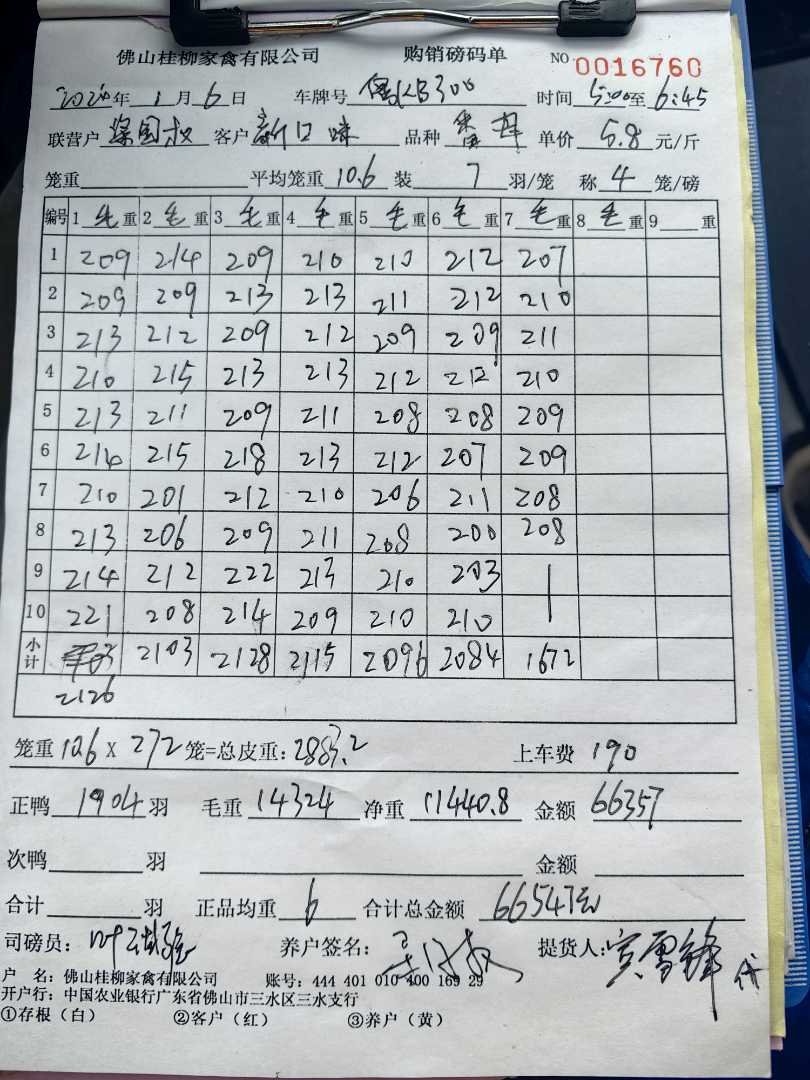 佛山桂柳家禽有限公司 购销磅码单 NO 0016760
2026年 1 月 6 日 车牌号 KB300 时间 5:00至 6:45
联营户 梁国权 客户 新口味 品种 单价 5.8 元/斤
笼重 平均笼重 10.6 装 7 羽/笼 称 4 笼/磅
编号 1 毛 重 2 毛 重 3 毛 重 4 毛 重 5 毛 重 6 毛 重 7 毛 重 8 毛 重 9 重
1 209 214 209 210 210 212 207
2 209 209 213 213 211 212 210
3 213 212 209 212 209 209 211
4 210 215 213 213 212 212 210
5 213 211 209 211 208 208 209
6 214 215 218 213 212 207 209
7 210 201 212 210 206 211 208
8 213 206 209 211 208 200 208
9 214 212 222 213 210 203
10 221 208 214 209 210 210
小计 2103 2128 2115 2096 2084 1672
2126
笼重 10.6 X 272 笼=总皮重: 2883.2 上车费 190
正鸭 1904 羽 毛重 14324 净重 11440.8 金额 66357
次鸭 羽 金额
合计 羽 正品均重 6 合计总金额 66547元
司磅员: 叶 养户签名: 提货人: 雪锋 代
户 名: 佛山桂柳家禽有限公司 账号: 444 401 010 400 169 29
开户行: 中国农业银行广东省佛山市三水区三水支行
①存根（白） ②客户（红） ③养户（黄）